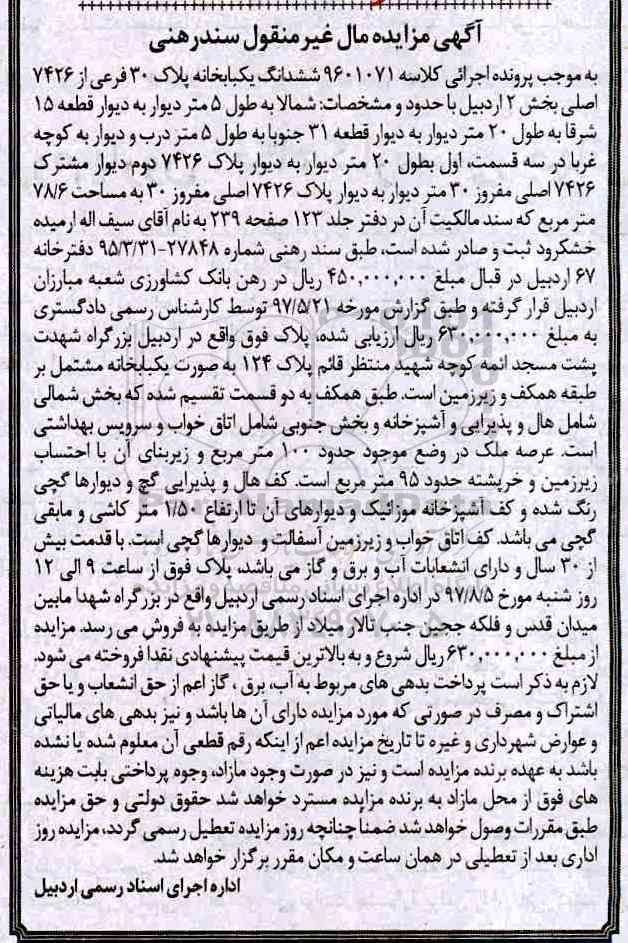 آگهی مزایده مال غیر منقول سند رهنی
به موجب پرونده اجرائی کلاسه ۹۶۰۱۰۷۱ ششدانگ یکبابخانه پلاک ۳۰ فرعی از ۷۴۲۶
اصلی بخش ۲ اردبیل با حدود و مشخصات: شمالا به طول ۵ متر دیوار به دیوار قطعه ۱۵
شرقا به طول ۲۰ متر دیوار به دیوار قطعه ۳۱ جنوبا به طول ۵ متر درب و دیوار به کوچه
غربا در سه قسمت، اول بطول ۲۰ متر دیوار به دیوار پلاک ۷۴۲۶ دوم دیوار مشترک
۷۴۲۶ اصلی مفروز ۳۰ متر دیوار به دیوار پلاک ۷۴۲۶ اصلی مفروز ۳۰ به مساحت ۷۸/۶
متر مربع که سند مالکیت آن در دفتر جلد ۱۲۳ صفحه ۲۳۹ به نام آقای سیف اله ارمیده
خشکرود ثبت و صادر شده است، طبق سند رهنی شماره ۲۷۸۴۸-۹۵/۳/۳۱ دفترخانه
۶۷ اردبیل در قبال مبلغ ۴۵۰,۰۰۰,۰۰۰ ریال در رهن بانک کشاورزی شعبه مبارزان
اردبیل قرار گرفته و طبق گزارش مورخه ۹۷/۵/۲۱ توسط کارشناس رسمی دادگستری
به مبلغ ۶۳۰,۰۰۰,۰۰۰ ریال ارزیابی شده، پلاک فوق واقع در اردبیل بزرگراه شهدت
پشت مسجد ائمه کوچه شهید منتظر قائم پلاک ۱۲۴ به صورت یکبابخانه مشتمل بر
طبقه همکف و زیرزمین است. طبق همکف به دو قسمت تقسیم شده که بخش شمالی
شامل هال و پذیرایی و آشپزخانه و بخش جنوبی شامل اتاق خواب و سرویس بهداشتی
است. عرصه ملک در وضع موجود حدود ۱۰۰ متر مربع و زیربنای آن با احتساب
زیرزمین و خرپشته حدود ۹۵ متر مربع است. کف هال و پذیرایی گچ و دیوارها گچی
رنگ شده و کف آشپزخانه موزائیک و دیوارهای آن تا ارتفاع ۱/۵۰ متر کاشی و مابقی
گچی می باشد. کف اتاق خواب و زیرزمین آسفالت و دیوارها گچی است. با قدمت بیش
از ۳۰ سال و دارای انشعابات آب و برق و گاز می باشد، پلاک فوق از ساعت ۹ الی ۱۲
روز شنبه مورخ ۹۷/۸/۵ در اداره اجرای اسناد رسمی اردبیل واقع در بزرگراه شهدا مابین
میدان قدس و فلکه ججین جنب تالار میلاد از طریق مزایده به فروش می رسد. مزایده
از مبلغ ۶۳۰,۰۰۰,۰۰۰ ریال شروع و به بالاترین قیمت پیشنهادی نقدا فروخته می شود.
لازم به ذکر است پرداخت بدهی های مربوط به آب، برق ، گاز اعم از حق انشعاب و یا حق
اشتراک و مصرف در صورتی که مورد مزایده دارای آن ها باشد و نیز بدهی های مالیاتی
و عوارض شهرداری و غیره تا تاریخ مزایده اعم از اینکه رقم قطعی آن معلوم شده یا نشده
باشد به عهده برنده مزایده است و نیز در صورت وجود مازاد، وجوه پرداختی بابت هزینه
های فوق از محل مازاد به برنده مزایده مسترد خواهد شد حقوق دولتی و حق مزایده
طبق مقررات وصول خواهد شد ضمنا چنانچه روز مزایده تعطیل رسمی گردد، مزایده روز
اداری بعد از تعطیلی در همان ساعت و مکان مقرر برگزار خواهد شد.
اداره اجرای اسناد رسمی اردبیل